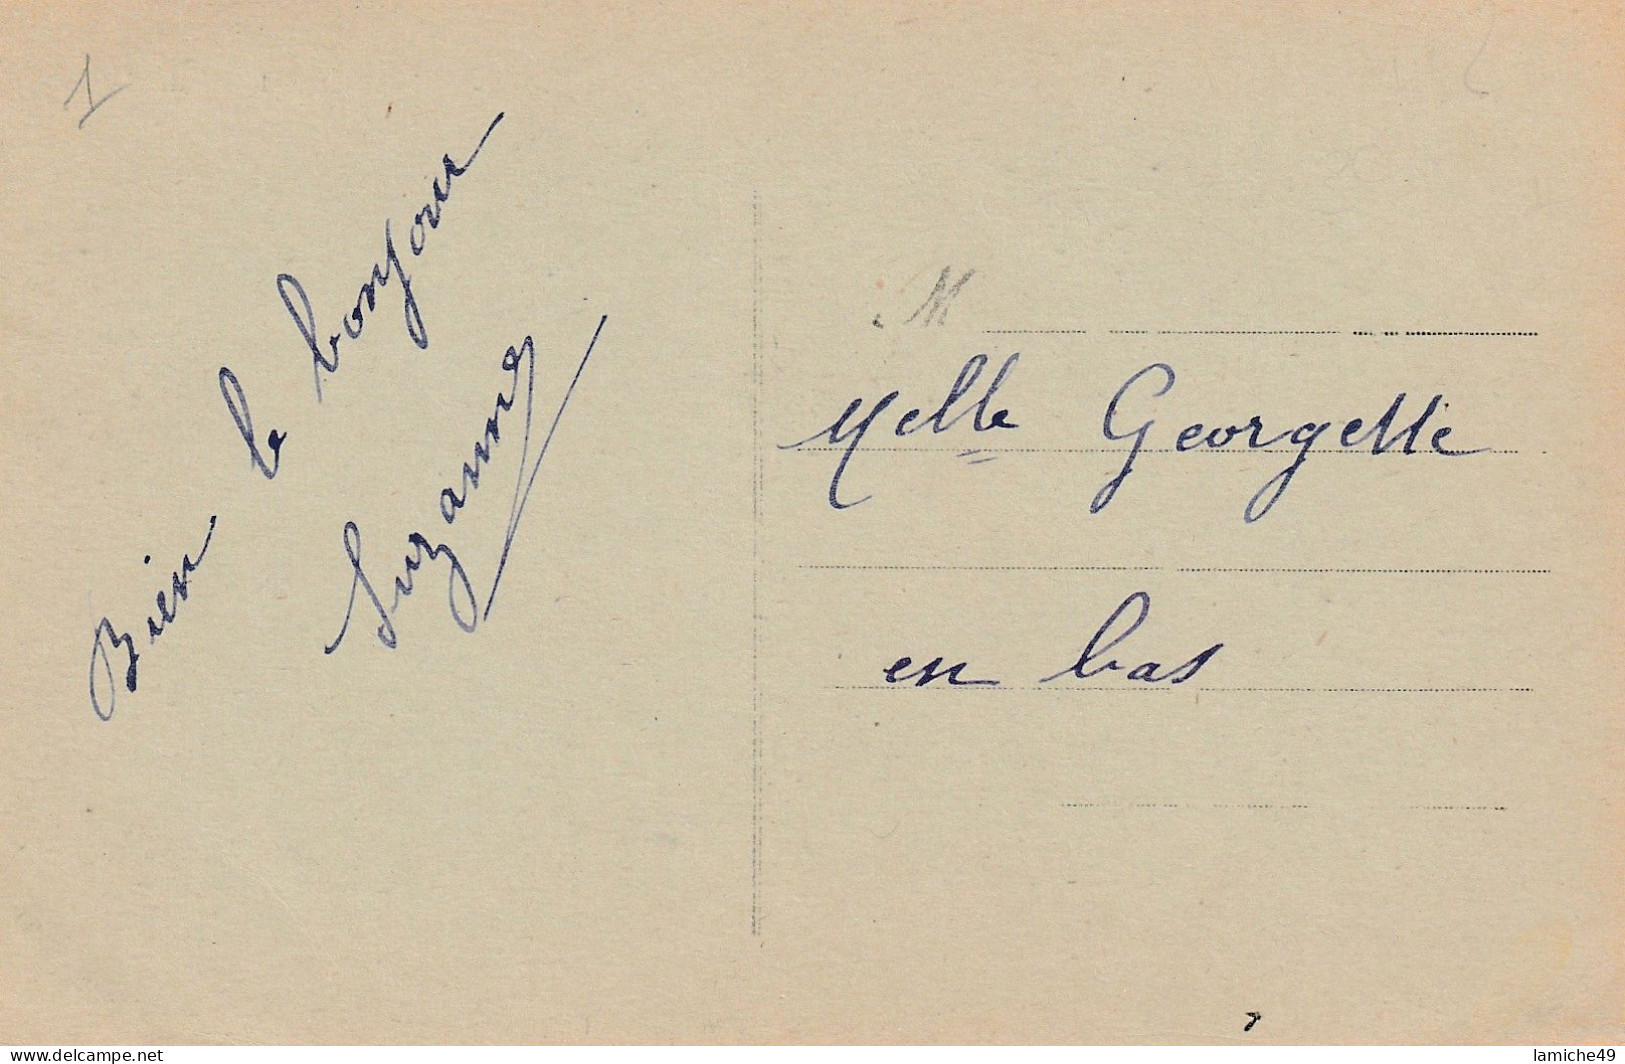 1
Bien le bonjour
Suzanne
M
Melle Georgette
en bas
www.delcampe.net
lamiche49